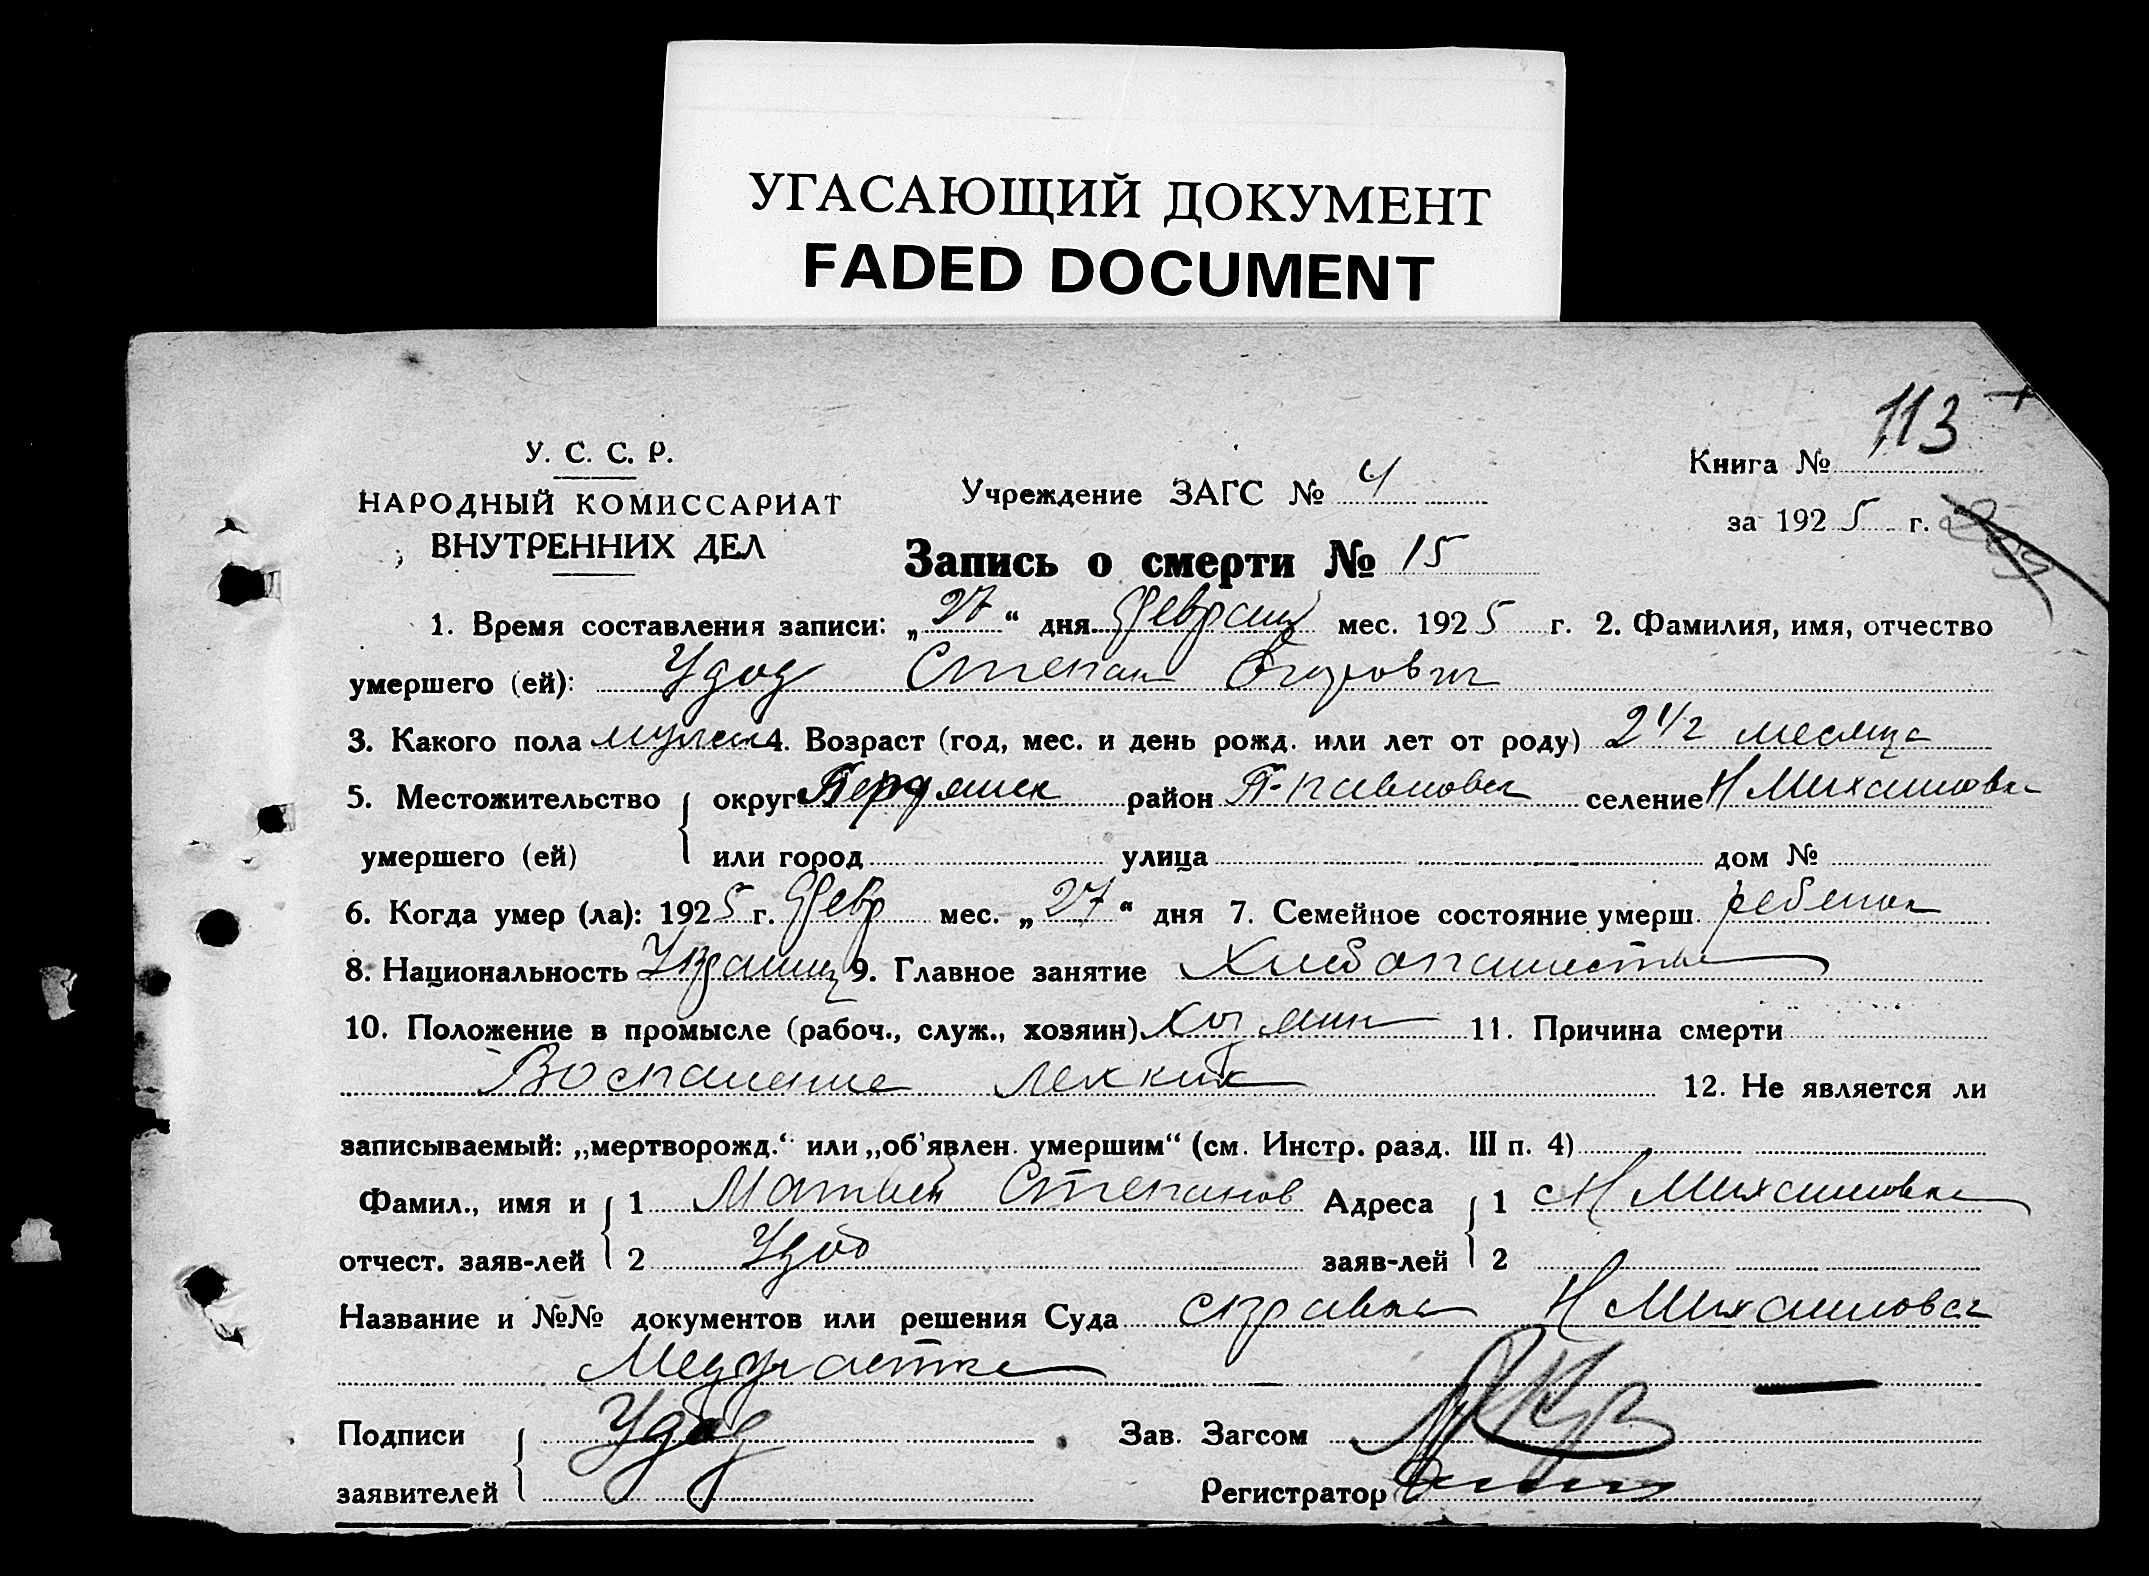 УГАСАЮЩИЙ ДОКУМЕНТ
FADED DOCUMENT
113
У. С. С. Р.
НАРОДНЫЙ КОМИССАРИАТ
ВНУТРЕННИХ ДЕЛ
Учреждение ЗАГС № 4
Книга №
за 1925 г.
Запись о смерти № 15
1. Время составления записи: „27“ дня февраля мес. 1925 г. 2. Фамилия, имя, отчество
умершего (ей): Удод Степан Егорович
3. Какого пола мужск 4. Возраст (год, мес. и день рожд. или лет от роду) 2 1/2 месяца
5. Местожительство округ Бердянск район П-павловск селение Н Михайловка
умершего (ей) или город улица дом №
6. Когда умер (ла): 1925 г. Февр мес. „27“ дня 7. Семейное состояние умерш. ребенок
8. Национальность Украинц 9. Главное занятие Хлебопашество
10. Положение в промысле (рабоч., служ., хозяин) хозяин 11. Причина смерти
Воспаление легких 12. Не является ли
записываемый: „мертворожд.“ или „об'явлен. умершим“ (см. Инстр. разд. III п. 4)
Фамил., имя и 1 Матвей Степанов Адреса 1 с Н Михайловка
отчест. заяв-лей 2 Удод заяв-лей 2
Название и №№ документов или решения Суда справка Н Михайловск
Медучастка
Подписи Удод Зав. Загсом
заявителей Регистратор